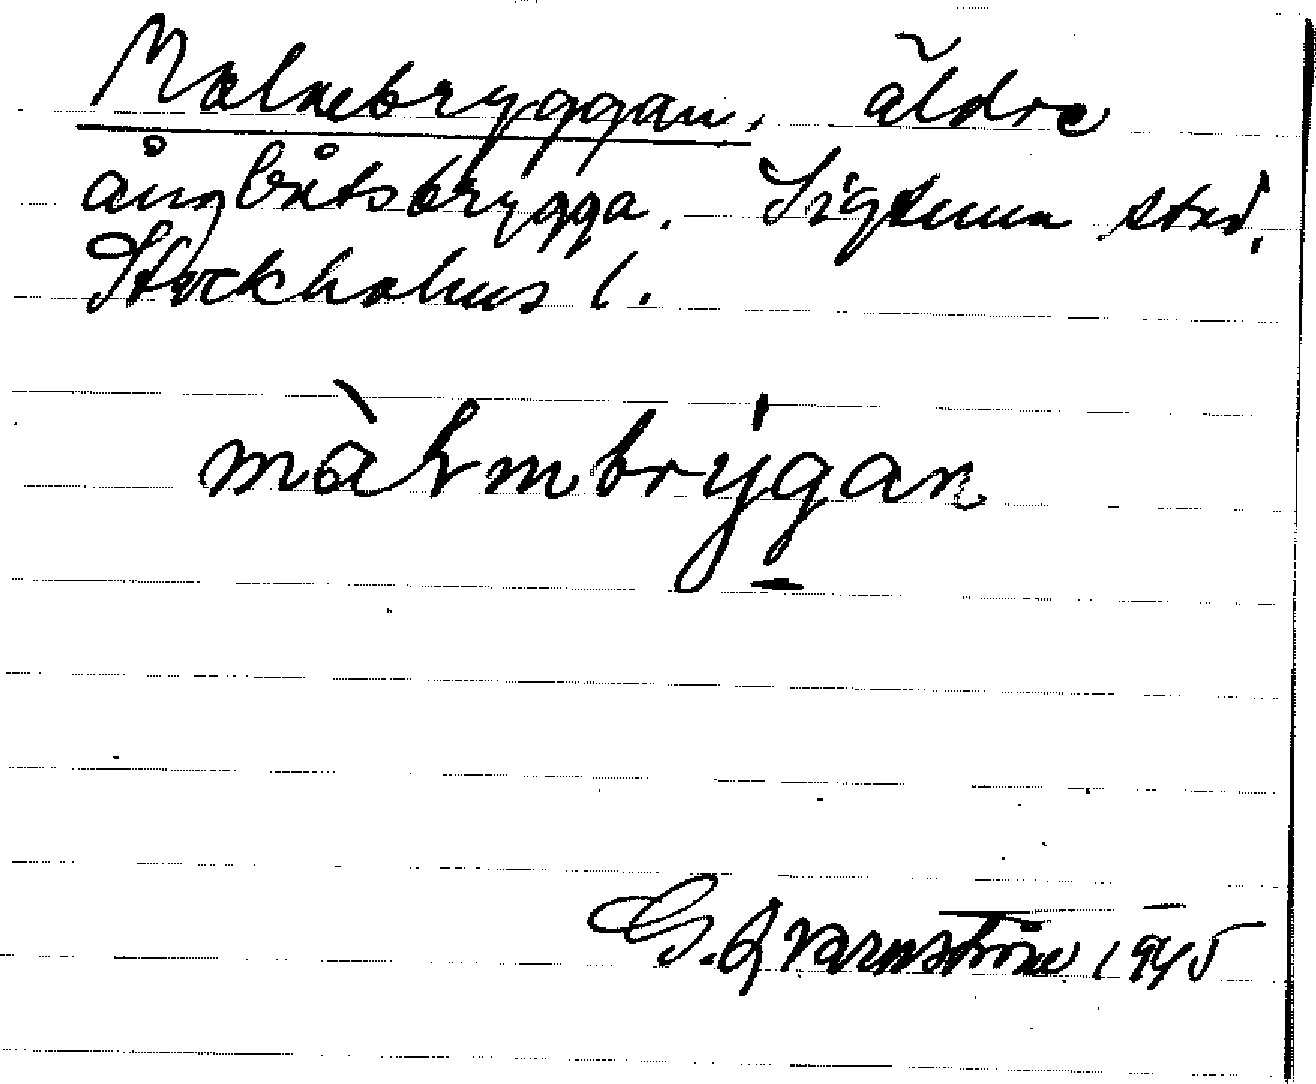 Malmbryggan, äldre
ångbåtsbrygga. Sigtuna stad,
Stockholms l.
màlmbrýgan
G. Qvarnström 1945